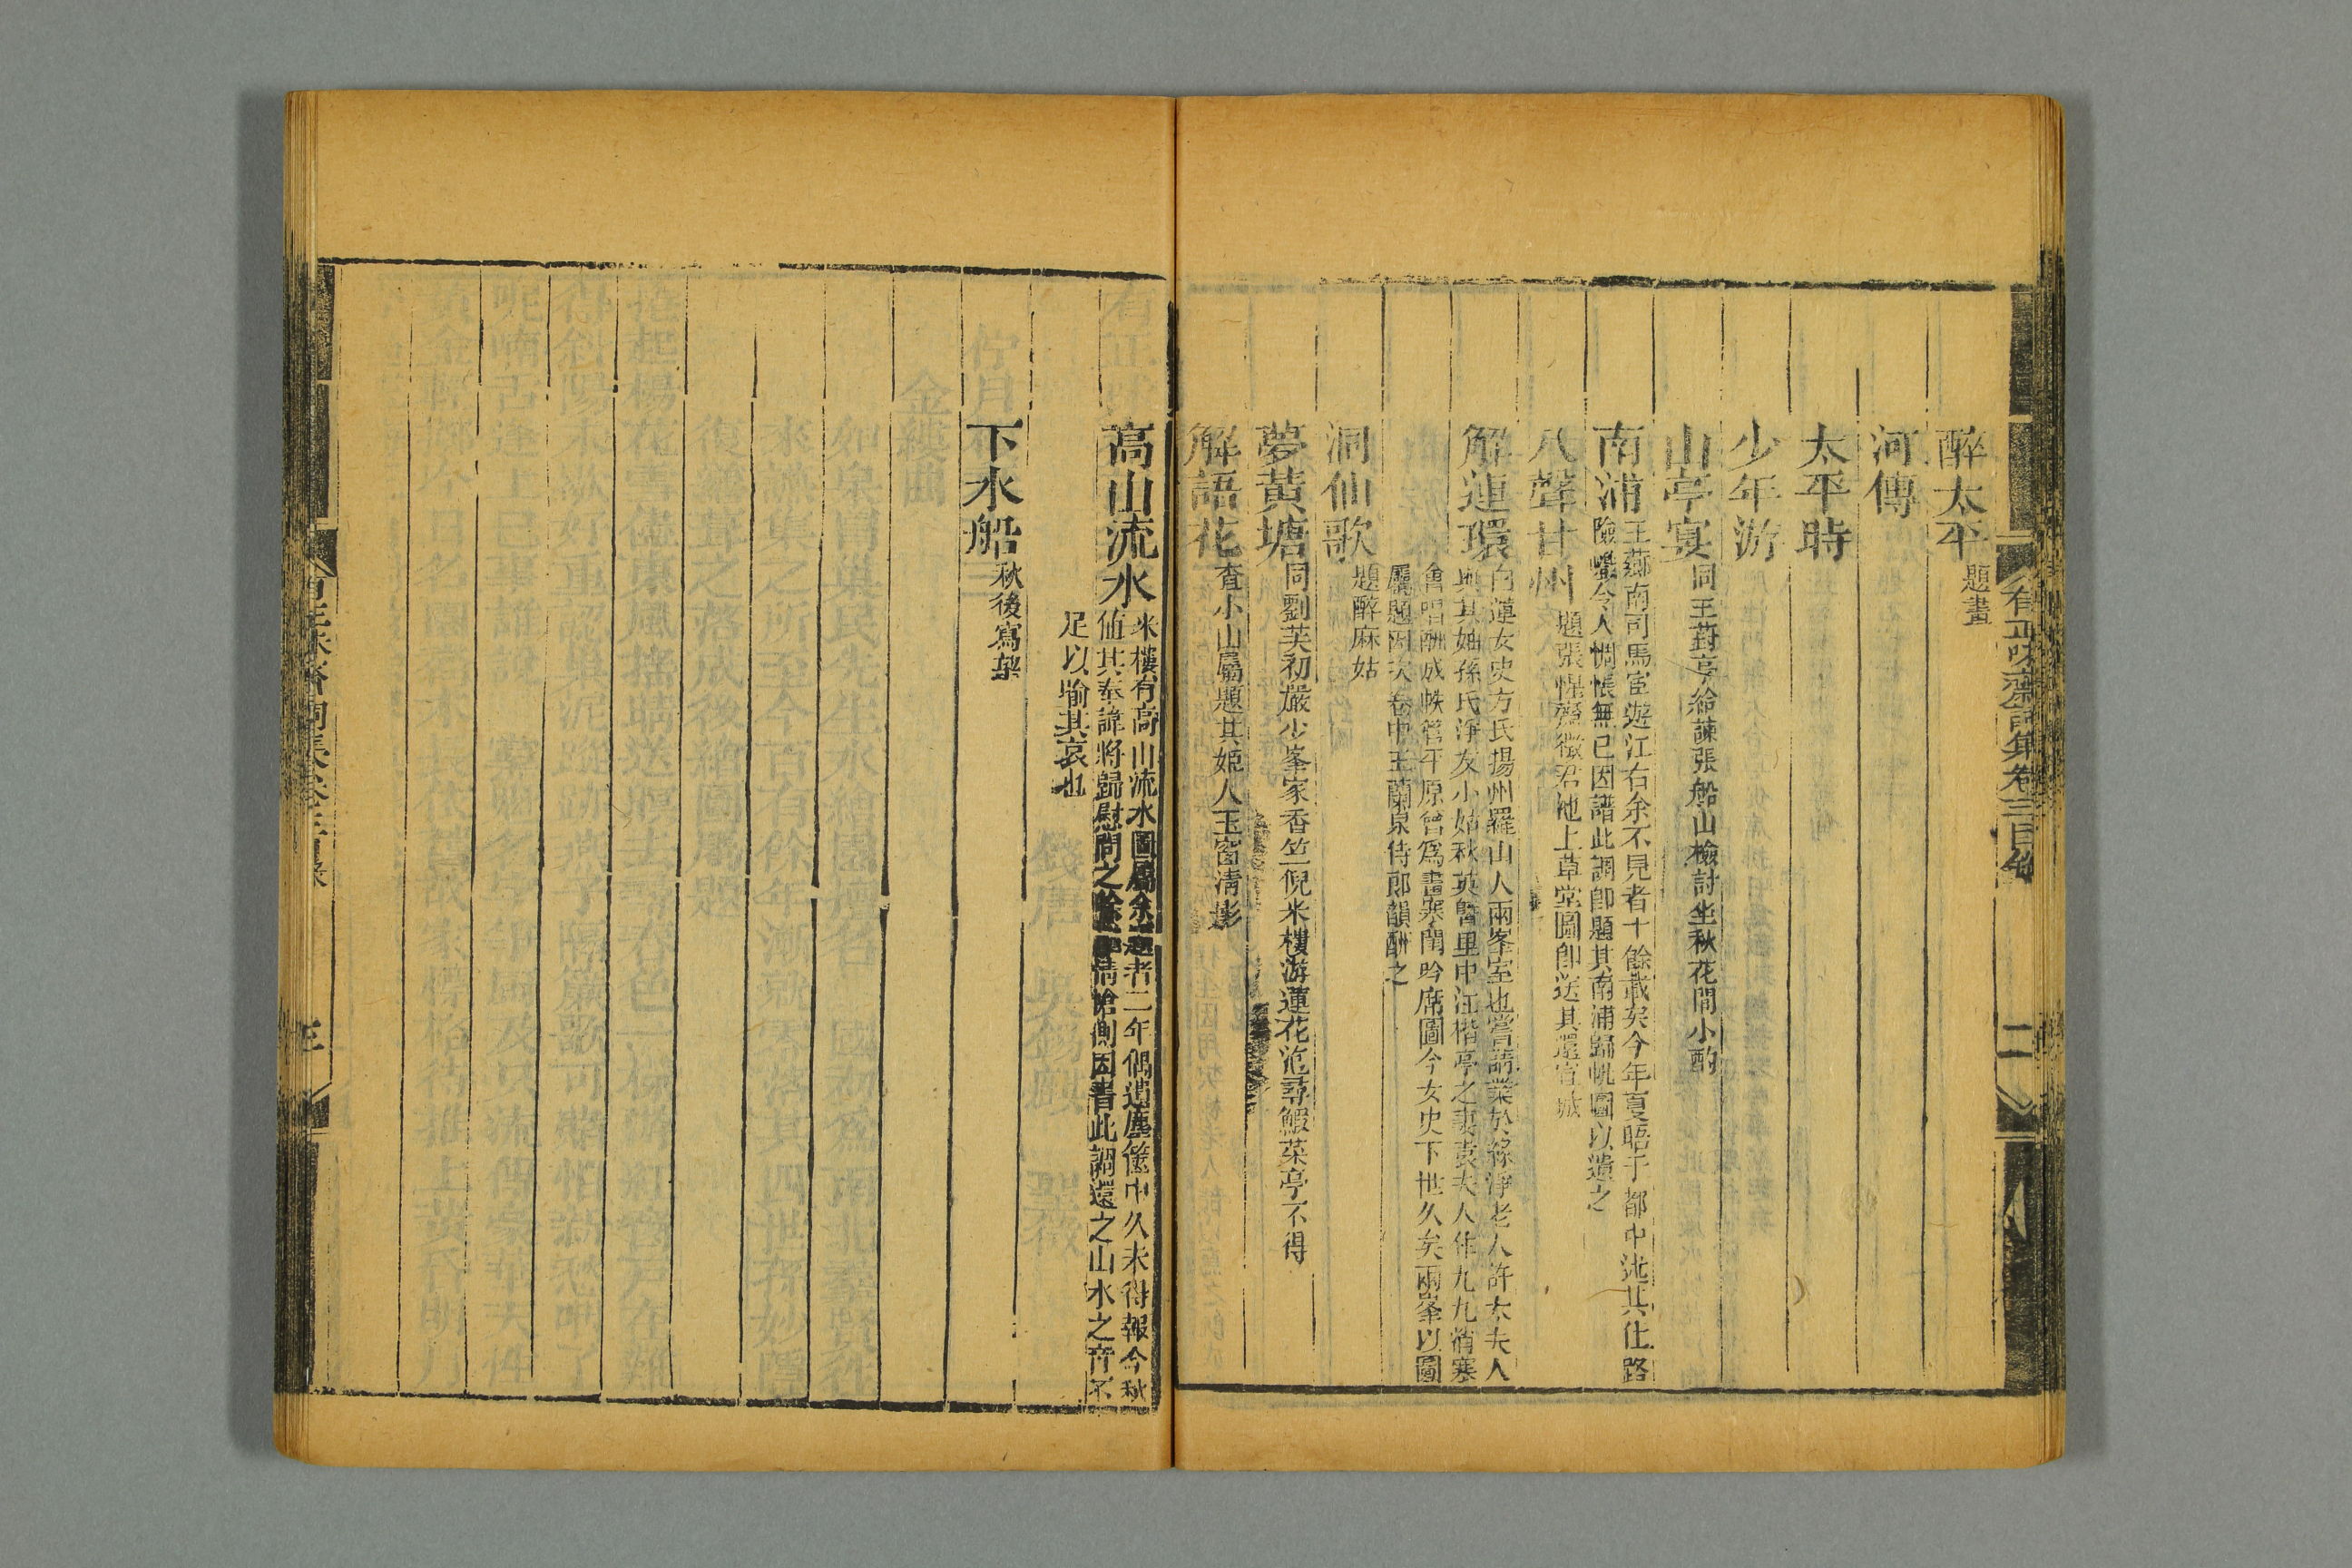 醉太平題畫
河傳
太平時
少年游
山亭宴同王葑亭給諫張船山檢討坐秋花間小酌
南浦王薌南司馬宦遊江右余不見者十餘歲矣今年夏晤于都中述其仕路
險巇令人惆悵無已因譜此調卽題其南浦歸帆圖以遺之
八聲甘州題張憚齋徵君池上草堂圖卽送其還宣城
解連環白蓮女史方氏揚州羅山人兩峯室也嘗請業於綠淨老人許太夫人
與其妯孫氏淨友小姑秋英曁里中汪楷亭之妻袁夫人作九九消寒
會唱酬成帙管平原曾爲畫寒閨吟席圖今女史下世久矣兩峯以圖
屬題因次卷中王蘭泉侍郞韻酬之
洞仙歌題醉麻姑
夢黃塘同劉芙初嚴少峯家香竺倪米樓游蓮花池尋鰕菜亭不得
解語花査小山屬題其姬人玉窗淸影
有正味齋詞集卷三目錄
二
高山流水米樓有高山流水圖屬余題者二年偶遺塵篋中久未得報今秋
値其奉諱將歸慰問之餘情愴惻因書此調還之山水之音不
足以喻其哀也
下水船秋後寫槳
三